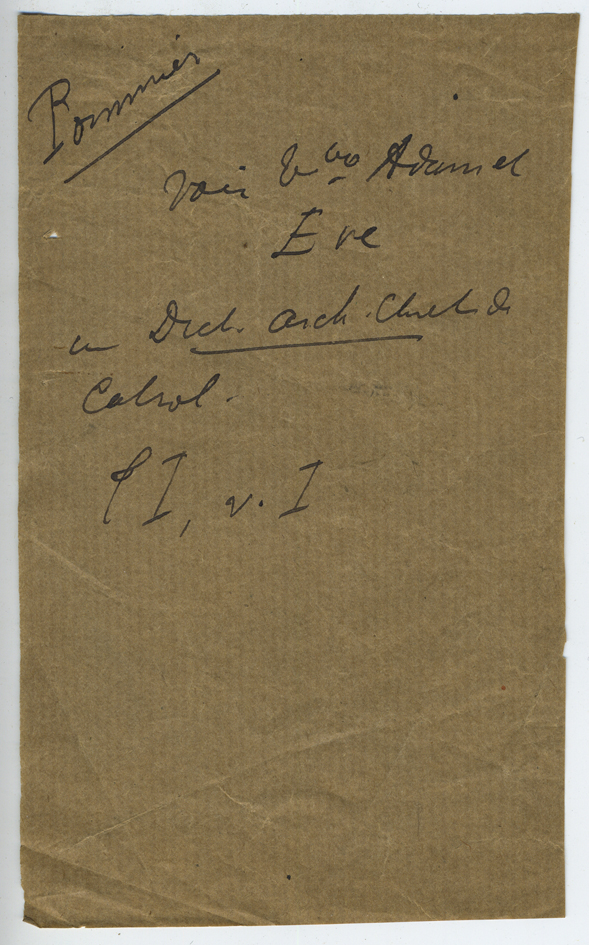 Pommier
voir Vbo Adam et
Eve
in Dict. arch. Chret. de
Cabrol.
t I, v. I